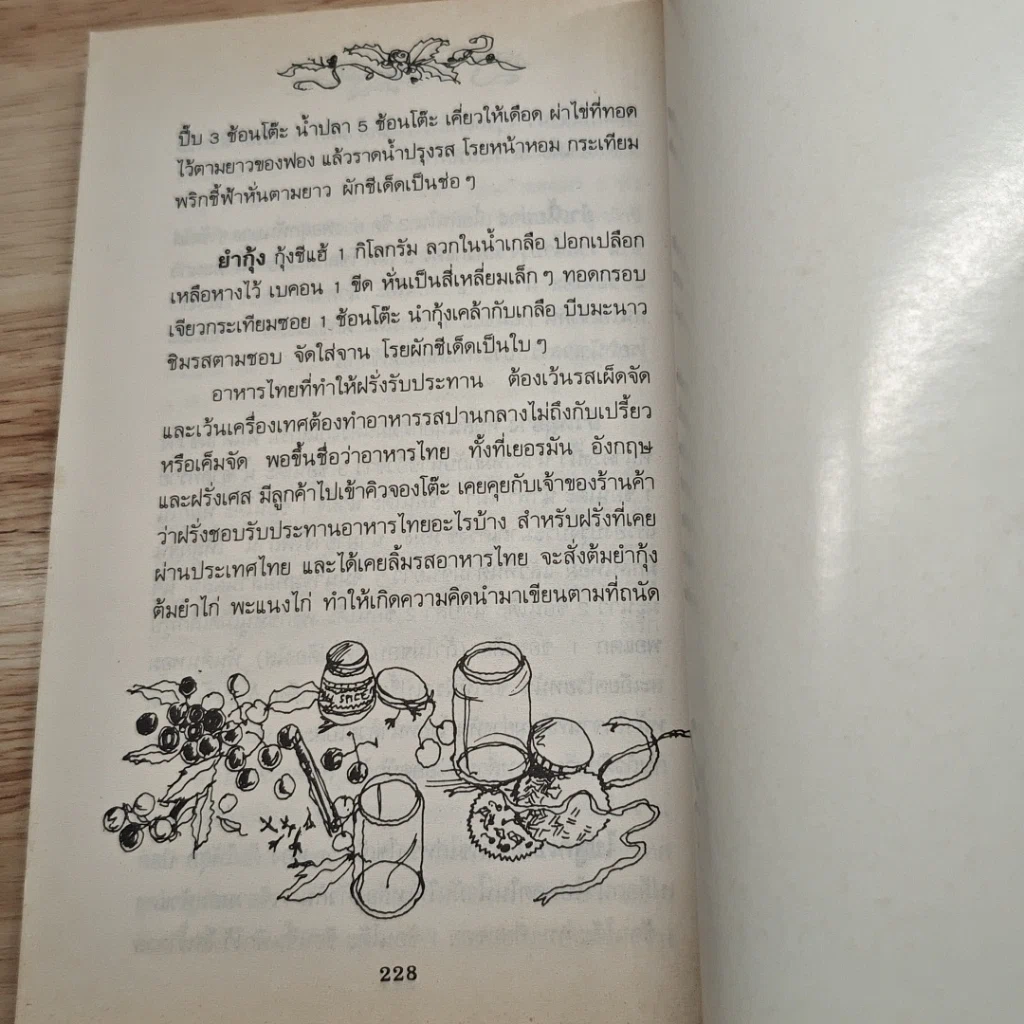 ปี๊บ 3 ช้อนโต๊ะ น้ำปลา 5 ช้อนโต๊ะ เคี่ยวให้เดือด ผ่าไข่ที่ทอด
ไว้ตามยาวของฟอง แล้วราดน้ำปรุงรส โรยหน้าหอม กระเทียม
พริกชี้ฟ้าหั่นตามยาว ผักชีเด็ดเป็นช่อๆ
ยำกุ้ง กุ้งชีแฮ้ 1 กิโลกรัม ลวกในน้ำเกลือ ปอกเปลือก
เหลือหางไว้ เบคอน 1 ขีด หั่นเป็นสี่เหลี่ยมเล็กๆ ทอดกรอบ
เจียวกระเทียมซอย 1 ช้อนโต๊ะ นำกุ้งเคล้ากับเกลือ บีบมะนาว
ชิมรสตามชอบ จัดใส่จาน โรยผักชีเด็ดเป็นใบๆ
อาหารไทยที่ทำให้ฝรั่งรับประทาน ต้องเว้นรสเผ็ดจัด
และเว้นเครื่องเทศต้องทำอาหารรสปานกลางไม่ถึงกับเปรี้ยว
หรือเค็มจัด พอขึ้นชื่อว่าอาหารไทย ทั้งที่เยอรมัน อังกฤษ
และฝรั่งเศส มีลูกค้าไปเข้าคิวจองโต๊ะ เคยคุยกับเจ้าของร้านค้า
ว่าฝรั่งชอบรับประทานอาหารไทยอะไรบ้าง สำหรับฝรั่งที่เคย
ผ่านประเทศไทย และได้เคยลิ้มรสอาหารไทย จะสั่งต้มยำกุ้ง
ต้มยำไก่ พะแนงไก่ ทำให้เกิดความคิดนำมาเขียนตามที่ถนัด
SPICE
228